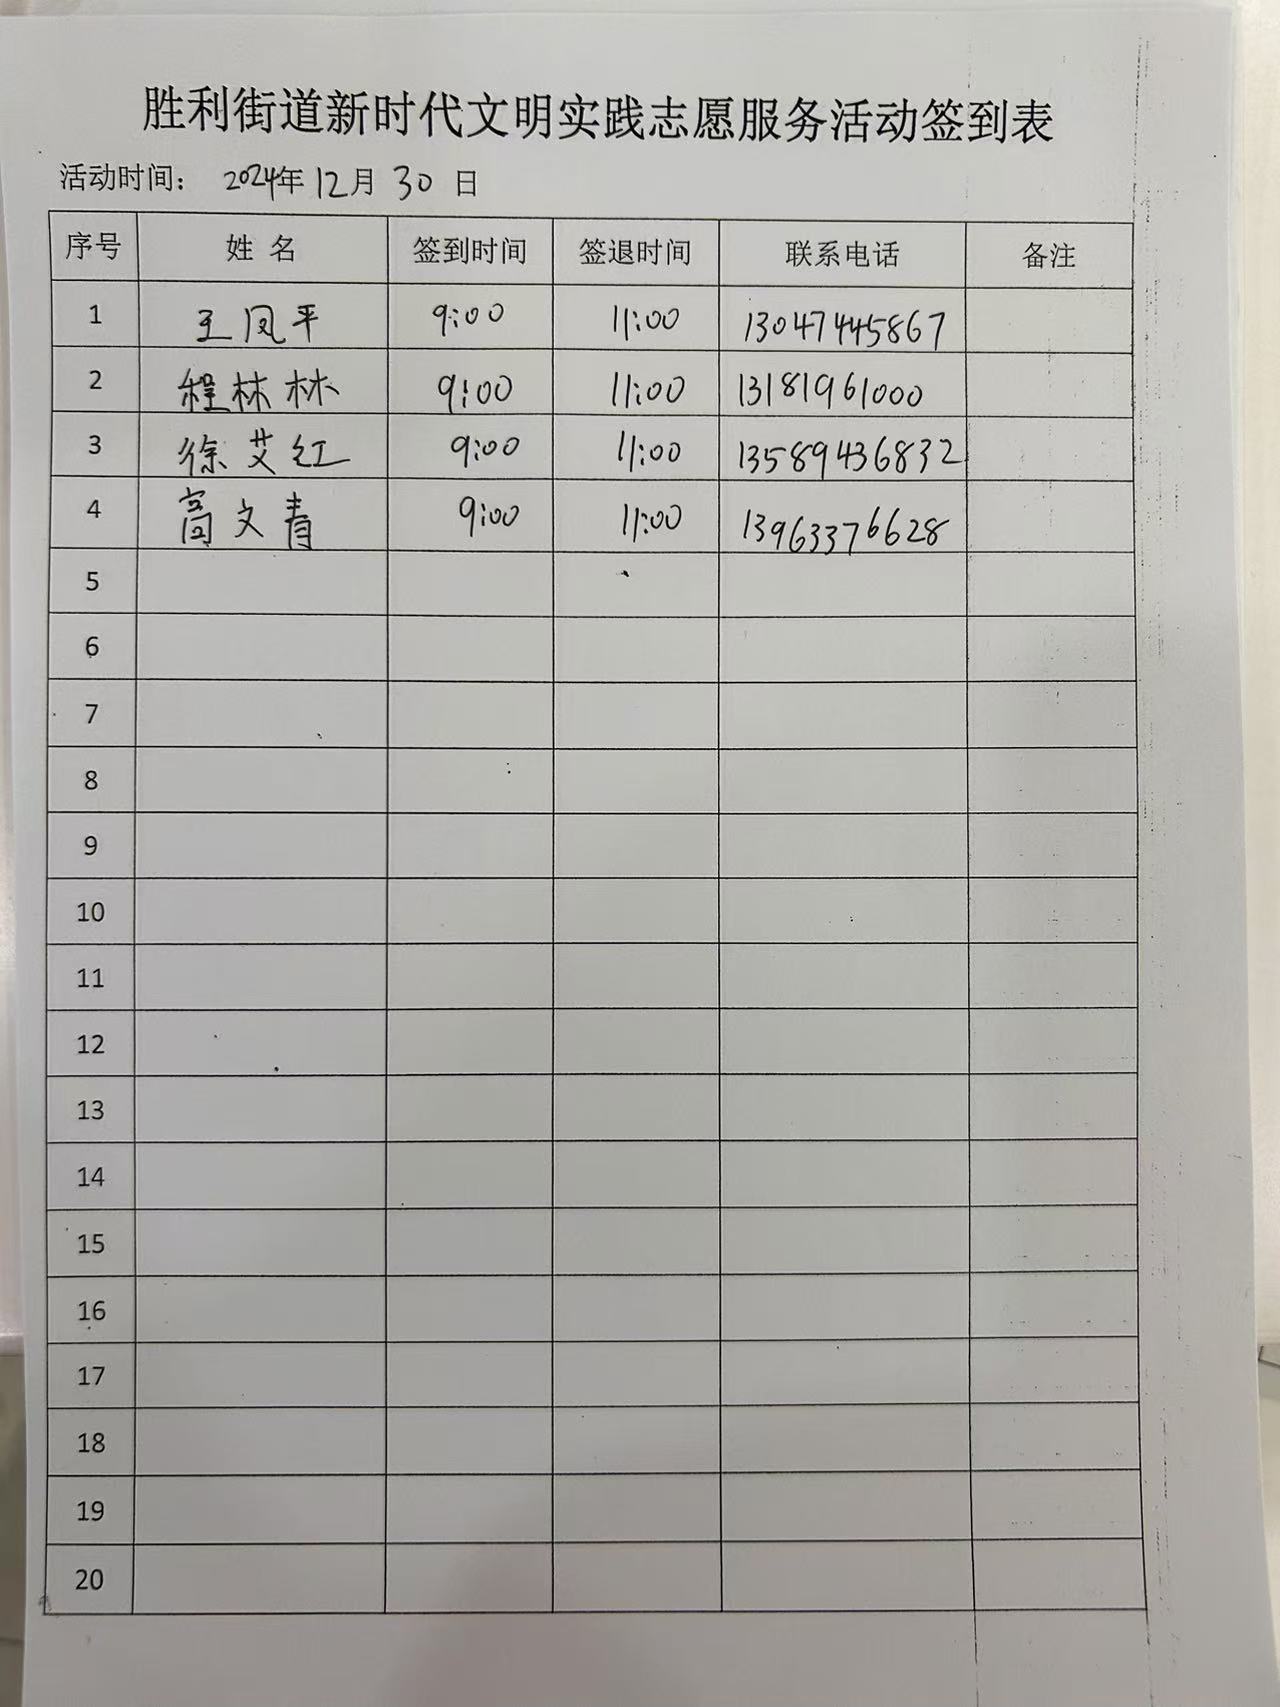 胜利街道新时代文明实践志愿服务活动签到表
活动时间： 2024年12月30日
序号 姓 名 签到时间 签退时间 联系电话 备注
1 王凤平 9:00 11:00 13047445867
2 程林林 9:00 11:00 13181961000
3 徐艾红 9:00 11:00 13589436832
4 高文青 9:00 11:00 13963376628
5
6
7
8
9
10
11
12
13
14
15
16
17
18
19
20